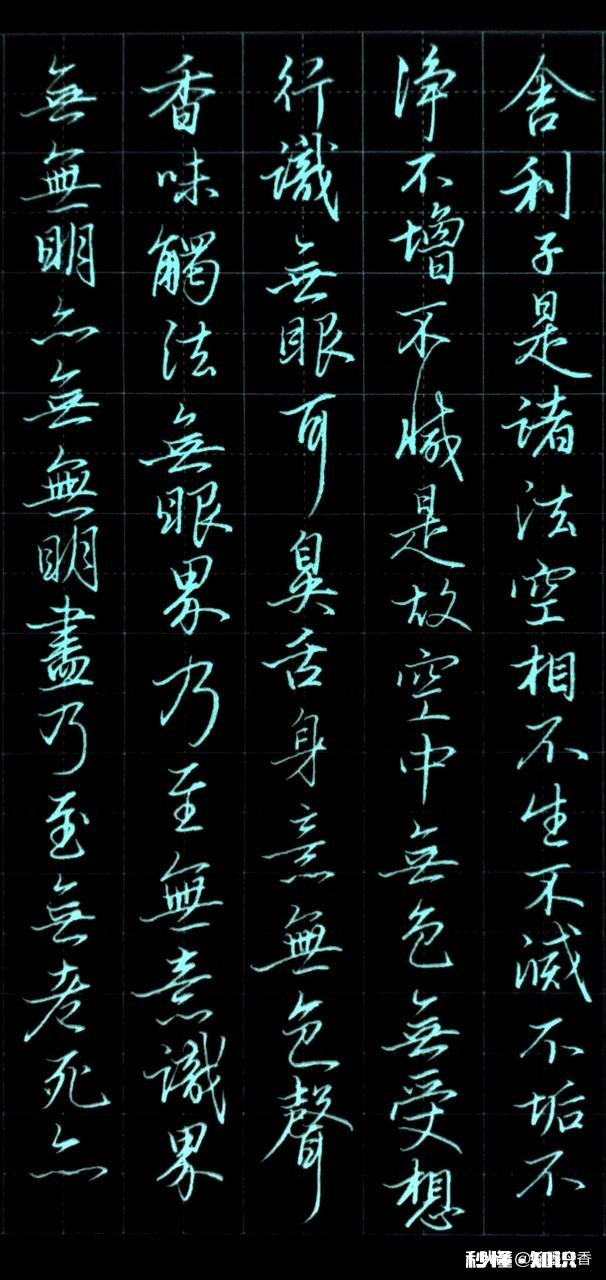 舍利子是諸法空相不生不滅不垢不
淨不增不減是故空中無色無受想
行識無眼耳鼻舌身意無色聲
香味觸法無眼界乃至無意識界
無無明亦無無明盡乃至無老死亦
秒懂@知识香